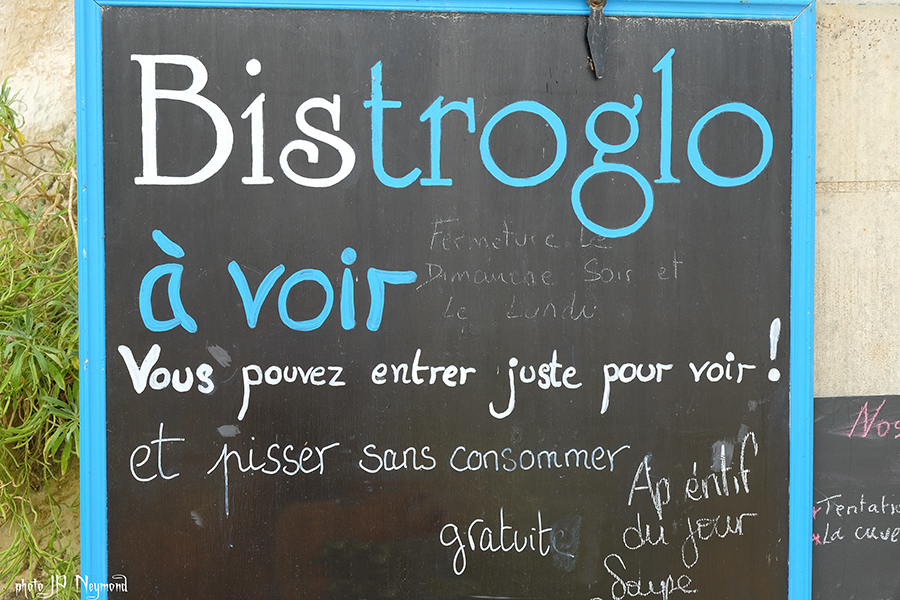 Bistroglo
à voir
Fermeture Le
Dimanche Soir et
Le Lundi
Vous pouvez entrer juste pour voir !
et pisser sans consommer
gratuite
Apéritif
du jour
Soupe
Nos
Tentatio
La cuve
photo JP Neymond